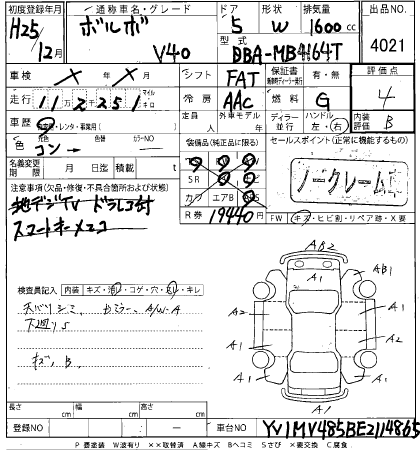 初度登録年月 通称車名・グレード ドア 形状 排気量 出品NO
H25/12月 ボルボ V40 5 W 1600cc 4021
型式 DBA-MB4164T
車検 × 年 × 月 シフト FAT 保証書 有・無 評価点
走行 11万2千251 マイル キロ 冷房 AAC 燃料 G 4
車歴 自家用・レンタ・事業用 定員 人 外車モデル 年 ディーラー 並行 ハンドル 左・右 内装評価 B
色 コン→ 色替 カラーNO 装備品(純正品に限る) セールスポイント(正常に機能するもの)
名義変更期限 月 日迄 積載 t ノークレーム
SR
注意事項(欠品・修復・不具合箇所および状態) カワ エアB
地デジTV ドラレコ付 R券 19440円 FW キズ・ヒビ割・リペア跡・X要
スマートキーメモコ
A1 A2 A1 AB1
検査員記入 内装 キズ・汚れ・コゲ・穴・キレ
天バリシミ A/W-A
下廻りS
キズB
A2 A1 A2
A1 A1 A1
A1
長さ cm 幅 cm 高さ cm
登録NO 車台NO YV1MV485BE2114865
P要塗装 W波有り ××取替済 A線キズ Bヘコミ Sさび ×要交換 C腐食